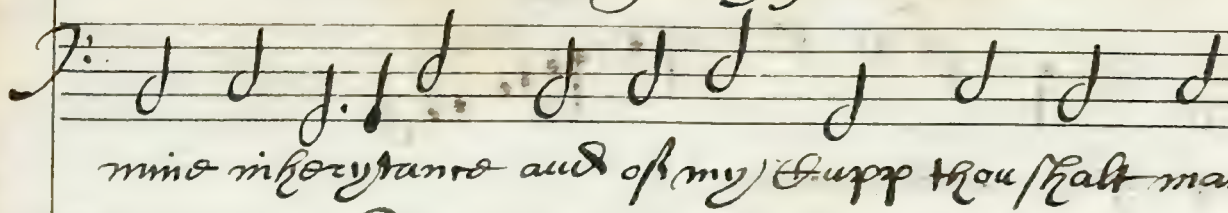 mine inherytance and of my Cupp thou shalt ma